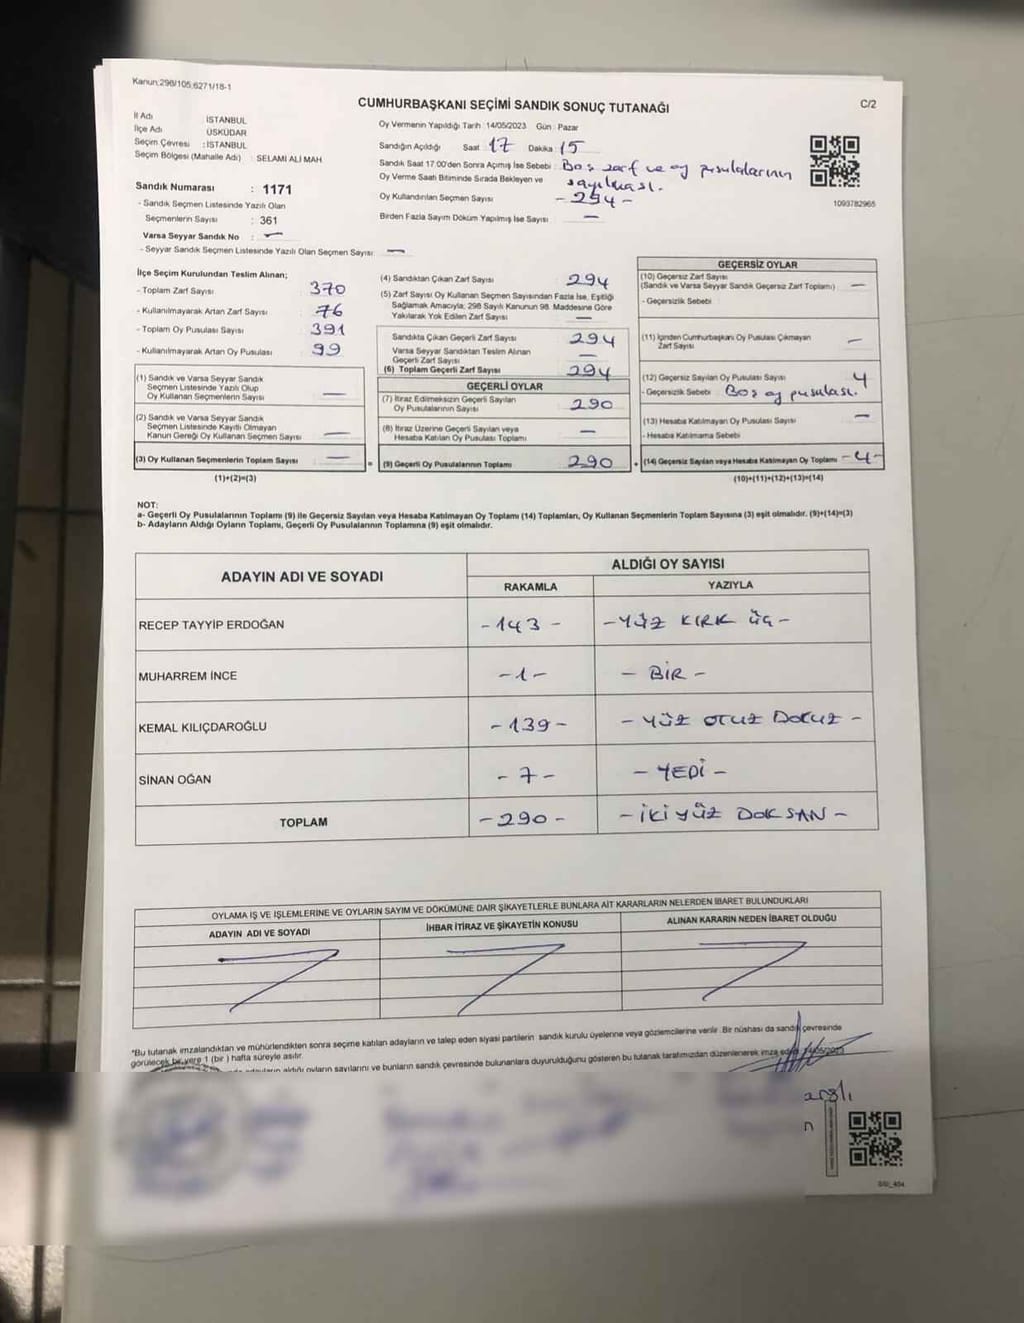 Kanun:298/105,6271/18-1
CUMHURBAŞKANI SEÇİMİ SANDIK SONUÇ TUTANAĞI
C/2
İl Adı : İSTANBUL
İlçe Adı : ÜSKÜDAR
Seçim Çevresi : İSTANBUL
Seçim Bölgesi (Mahalle Adı) : SELAMİ ALİ MAH
Sandık Numarası : 1171
- Sandık Seçmen Listesinde Yazılı Olan
Seçmenlerin Sayısı : 361
Varsa Seyyar Sandık No : —
- Seyyar Sandık Seçmen Listesinde Yazılı Olan Seçmen Sayısı: —
Oy Vermenin Yapıldığı Tarih : 14/05/2023 Gün : Pazar
Sandığın Açıldığı Saat : 17 Dakika : 15
Sandık Saat 17.00'den Sonra Açımış İse Sebebi : Boş zarf ve oy pusulalarının
Oy Verme Saati Bitiminde Sırada Bekleyen ve sayılması.
Oy Kullandırılan Seçmen Sayısı - 294 -
Birden Fazla Sayım Döküm Yapılmış İse Sayısı : —
1093782965
İlçe Seçim Kurulundan Teslim Alınan;
- Toplam Zarf Sayısı : 370
- Kullanılmayarak Artan Zarf Sayısı : 76
- Toplam Oy Pusulası Sayısı : 391
- Kullanılmayarak Artan Oy Pusulası : 99
(1) Sandık ve Varsa Seyyar Sandık
Seçmen Listesinde Yazılı Olup
Oy Kullanan Seçmenlerin Sayısı : —
(2) Sandık ve Varsa Seyyar Sandık
Seçmen Listesinde Kayıtlı Olmayan
Kanun Gereği Oy Kullanan Seçmen Sayısı : —
(3) Oy Kullanan Seçmenlerin Toplam Sayısı : —
(1)+(2)=(3)
(4) Sandıktan Çıkan Zarf Sayısı : 294
(5) Zarf Sayısı Oy Kullanan Seçmen Sayısından Fazla İse, Eşitliği
Sağlamak Amacıyla; 298 Sayılı Kanunun 98. Maddesine Göre
Yakılarak Yok Edilen Zarf Sayısı : —
Sandıkta Çıkan Geçerli Zarf Sayısı : 294
Varsa Seyyar Sandıktan Teslim Alınan
Geçerli Zarf Sayısı : —
(6) Toplam Geçerli Zarf Sayısı : 294
GEÇERLİ OYLAR
(7) İtiraz Edilmeksizin Geçerli Sayılan
Oy Pusulalarının Sayısı : 290
(8) İtiraz Üzerine Geçerli Sayılan veya
Hesaba Katılan Oy Pusulası Toplamı : —
= (9) Geçerli Oy Pusulalarının Toplamı : 290
GEÇERSİZ OYLAR
(10) Geçersiz Zarf Sayısı
(Sandık ve Varsa Seyyar Sandık Geçersiz Zarf Toplamı) : —
- Geçersizlik Sebebi :
(11) İçinden Cumhurbaşkanı Oy Pusulası Çıkmayan
Zarf Sayısı : —
(12) Geçersiz Sayılan Oy Pusulası Sayısı : 4
- Geçersizlik Sebebi : Boş oy pusulası.
(13) Hesaba Katılmayan Oy Pusulası Sayısı : —
- Hesaba Katılmama Sebebi :
+ (14) Geçersiz Sayılan veya Hesaba Katılmayan Oy Toplamı : - 4 -
(10)+(11)+(12)+(13)=(14)
NOT:
a- Geçerli Oy Pusulalarının Toplamı (9) ile Geçersiz Sayılan veya Hesaba Katılmayan Oy Toplamı (14) Toplamları, Oy Kullanan Seçmenlerin Toplam Sayısına (3) eşit olmalıdır. (9)+(14)=(3)
b- Adayların Aldığı Oyların Toplamı, Geçerli Oy Pusulalarının Toplamına (9) eşit olmalıdır.
ADAYIN ADI VE SOYADI
ALDIĞI OY SAYISI
RAKAMLA YAZIYLA
RECEP TAYYİP ERDOĞAN - 143 - - YÜZ KIRK ÜÇ -
MUHARREM İNCE - 1 - - BİR -
KEMAL KILIÇDAROĞLU - 139 - - YÜZ OTUZ DOKUZ -
SİNAN OĞAN - 7 - - YEDİ -
TOPLAM - 290 - - İKİ YÜZ DOKSAN -
OYLAMA İŞ VE İŞLEMLERİNE VE OYLARIN SAYIM VE DÖKÜMÜNE DAİR ŞİKAYETLERLE BUNLARA AİT KARARLARIN NELERDEN İBARET BULUNDUKLARI
ADAYIN ADI VE SOYADI İHBAR İTİRAZ VE ŞİKAYETİN KONUSU ALINAN KARARIN NEDEN İBARET OLDUĞU
*Bu tutanak imzalandıktan ve mühürlendikten sonra seçime katılan adayların ve talep eden siyasi partilerin sandık kurulu üyelerine veya gözlemcilerine verilir. Bir nüshası da sandık çevresinde
görülecek bir yere 1 (bir ) hafta süreyle asılır.
adayların aldığı oyların sayılarını ve bunların sandık çevresinde bulunanlara duyurulduğunu gösteren bu tutanak tarafımızdan düzenlenerek imza edildi. 14/05/2023